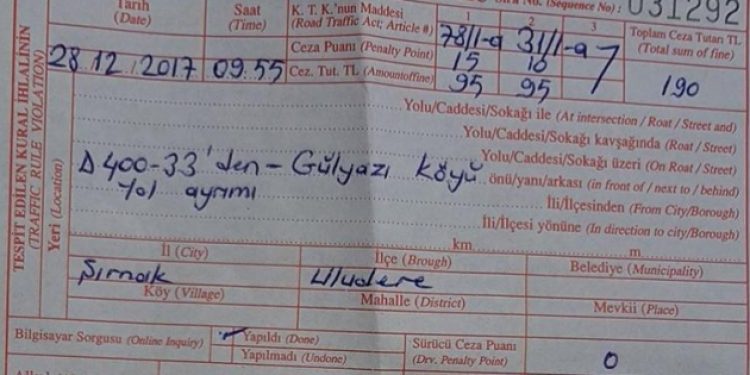 Tarih Saat K. T. K.'nun Maddesi 1 2 3 No. (Sequence No) : 031292
(Date) (Time) (Road Traffic Act; Article #) 78/1-a 31/1-a Toplam Ceza Tutarı TL
Ceza Puanı (Penalty Point) 15 10 (Total sum of fine)
28.12.2017 09.55 Cez. Tut. TL (Amountoffine) 95 95 190
TESPİT EDİLEN KURAL İHLALİNİN
(TRAFFIC RULE VIOLATION)
Yeri (Location)
Yolu/Caddesi/Sokağı ile (At intersection / Roat / Street and)
Yolu/Caddesi/Sokağı kavşağında (Roat / Street)
Yolu/Caddesi/Sokağı üzeri (On Roat / Street)
D400-33'den - Gülyazı Köyü önü/yanı/arkası (in front of / next to / behind)
yol ayrımı İli/İlçesinden (From City/Borough)
İli/İlçesi yönüne (In direction to city/Borough)
km. m.
İl (City) İlçe (Brough) Belediye (Municipality)
Şırnak Uludere
Köy (Village) Mahalle (District) Mevkii (Place)
Bilgisayar Sorgusu (Online Inquiry) Yapıldı (Done) Sürücü Ceza Puanı
Yapılmadı (Undone) (Drv. Penalty Point) 0